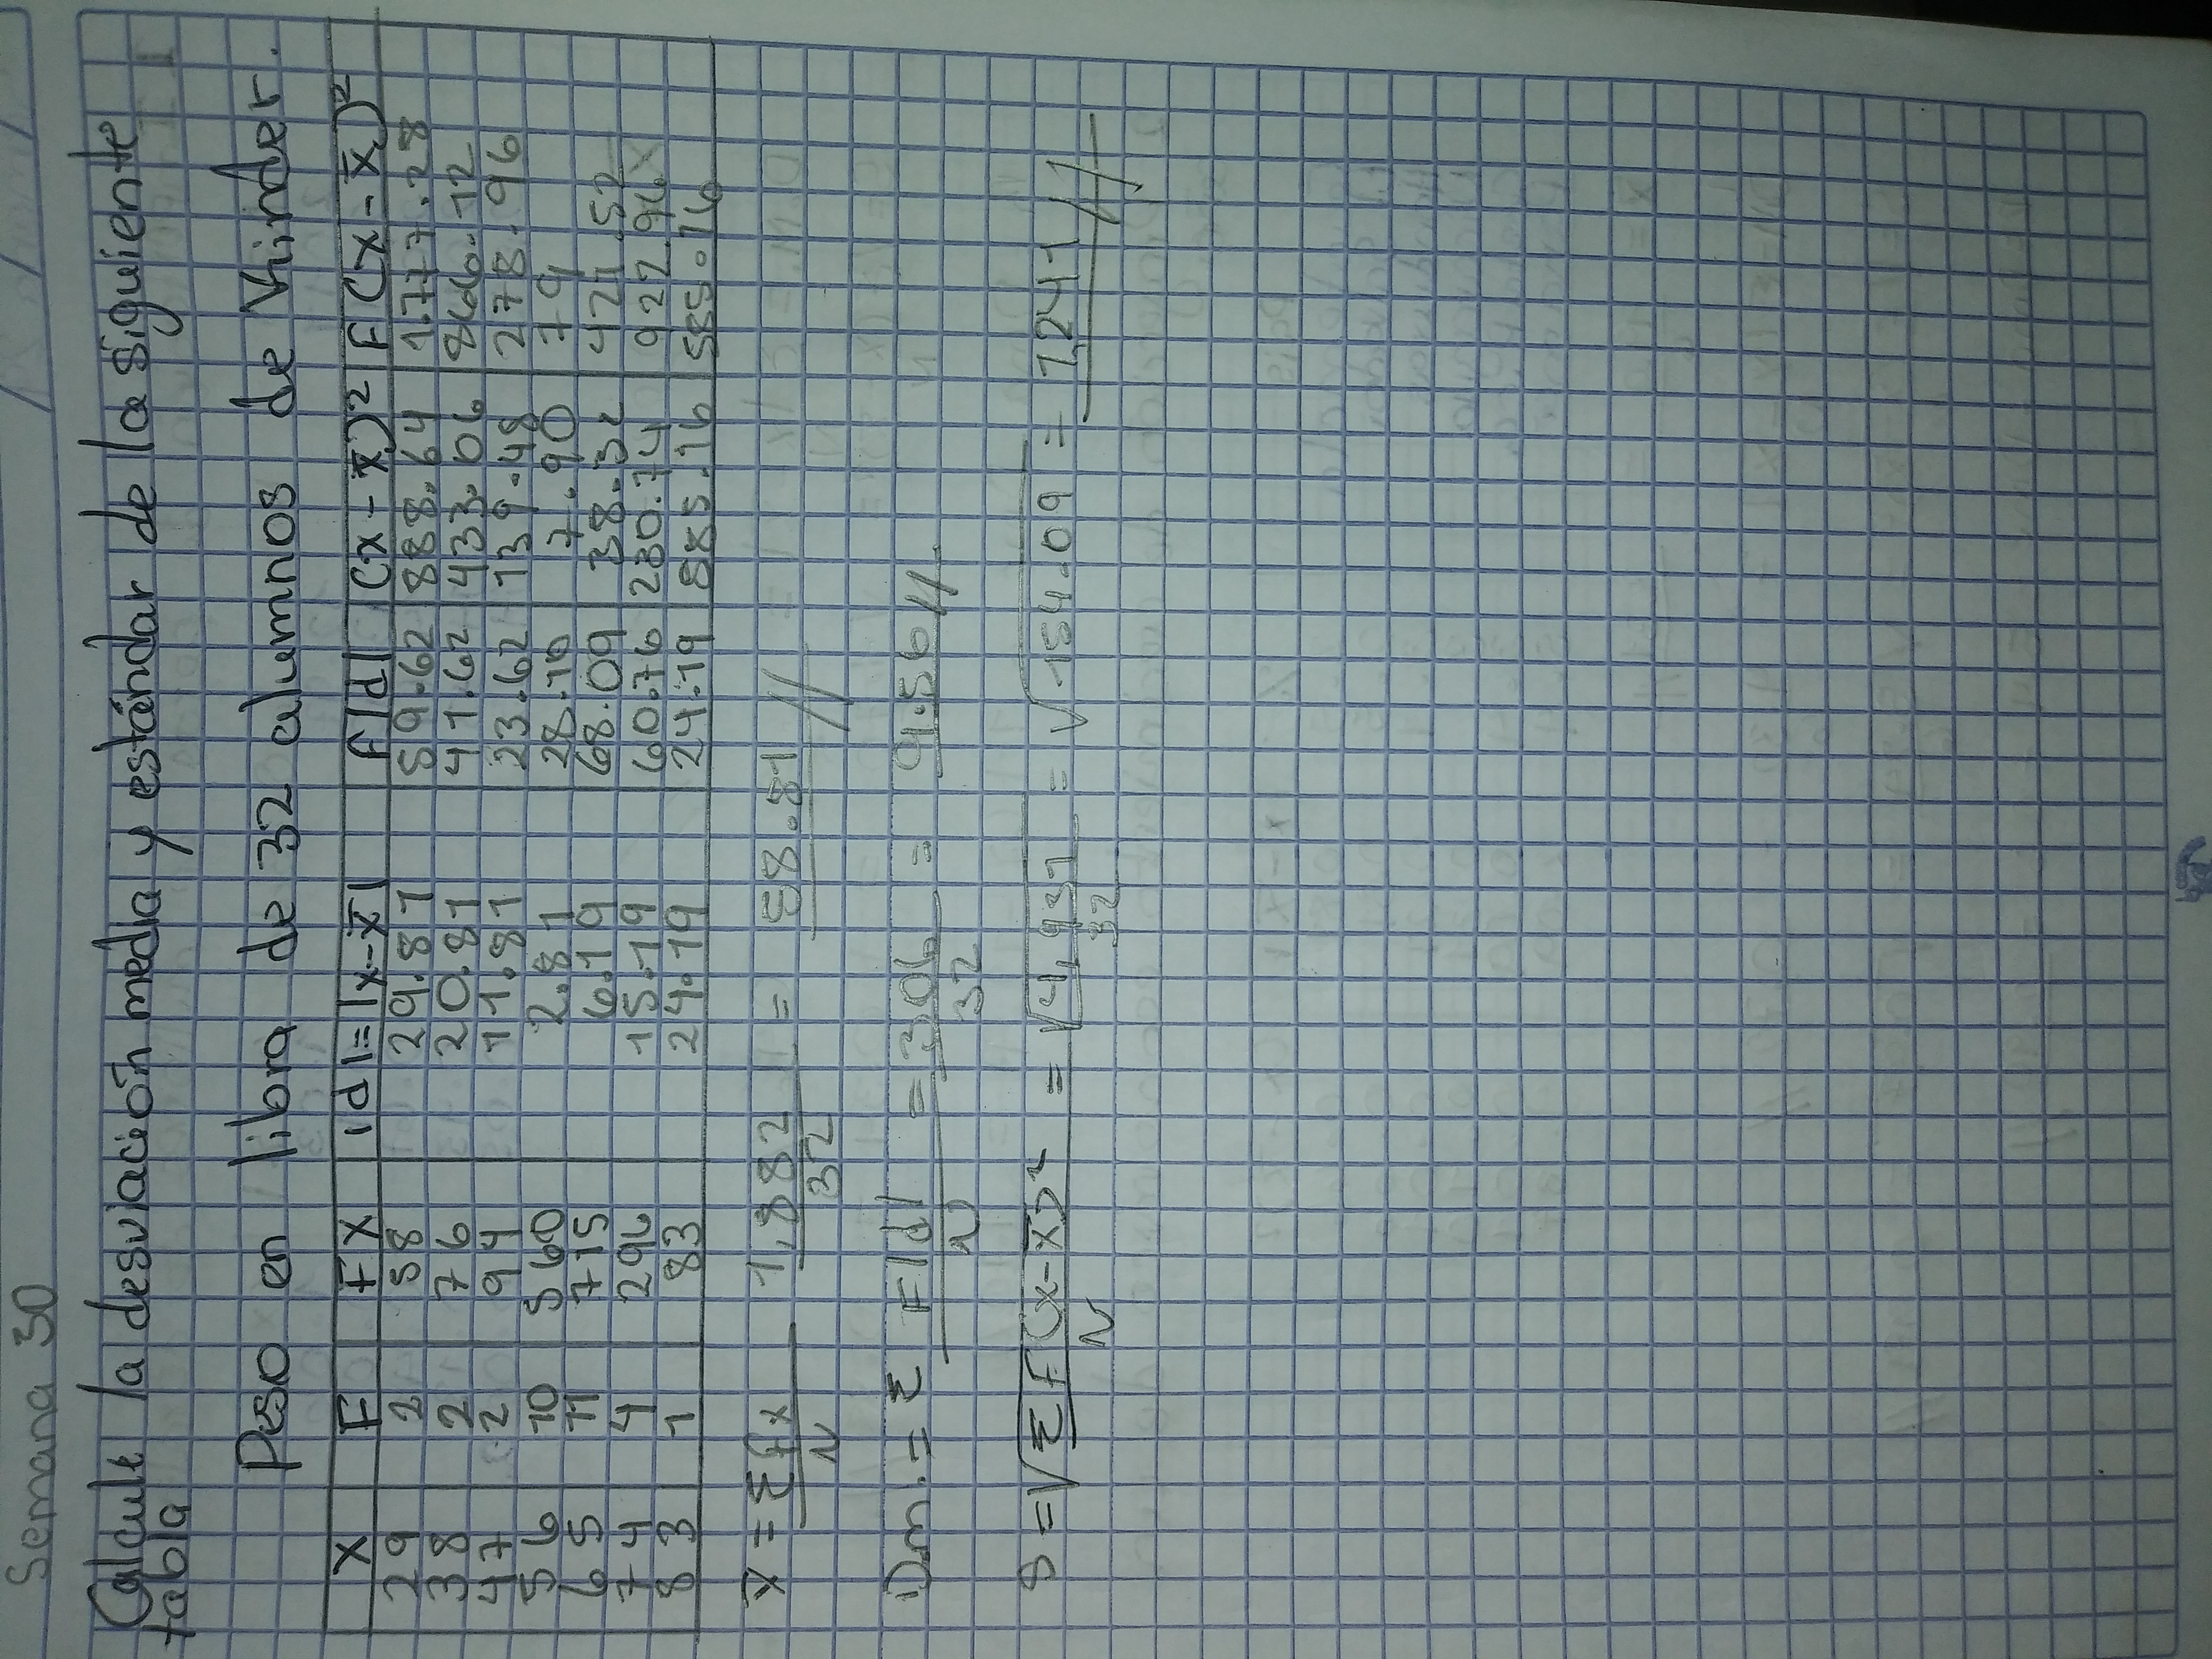 Semana 30
Calcule la desviación meda y estándar de la siguiente
tabla
Peso en libra de 32 alumnos de Kinder.
X F FX |d|=|x-x̄| F|d| (x-x̄)² F(x-x̄)²
29 2 58 29.81 59.62 888.64 1.777.28
38 2 76 20.81 41.62 433.06 866.12
47 2 94 11.81 23.62 139.48 278.96
56 10 560 2.81 28.10 7.90 79
65 11 715 6.19 68.09 38.32 421.52
74 4 296 15.19 60.76 230.74 922.96
83 1 83 24.19 24.19 585.16 585.16
x̄ = Σfx / N 1,882 / 32 = 58.81 //
D.m. = Σ F|d| / N = 306 / 32 = 9.56 //
S = √Σ F(x-x̄)² / N = √4,931 / 32 = √154.09 = 1,241 //